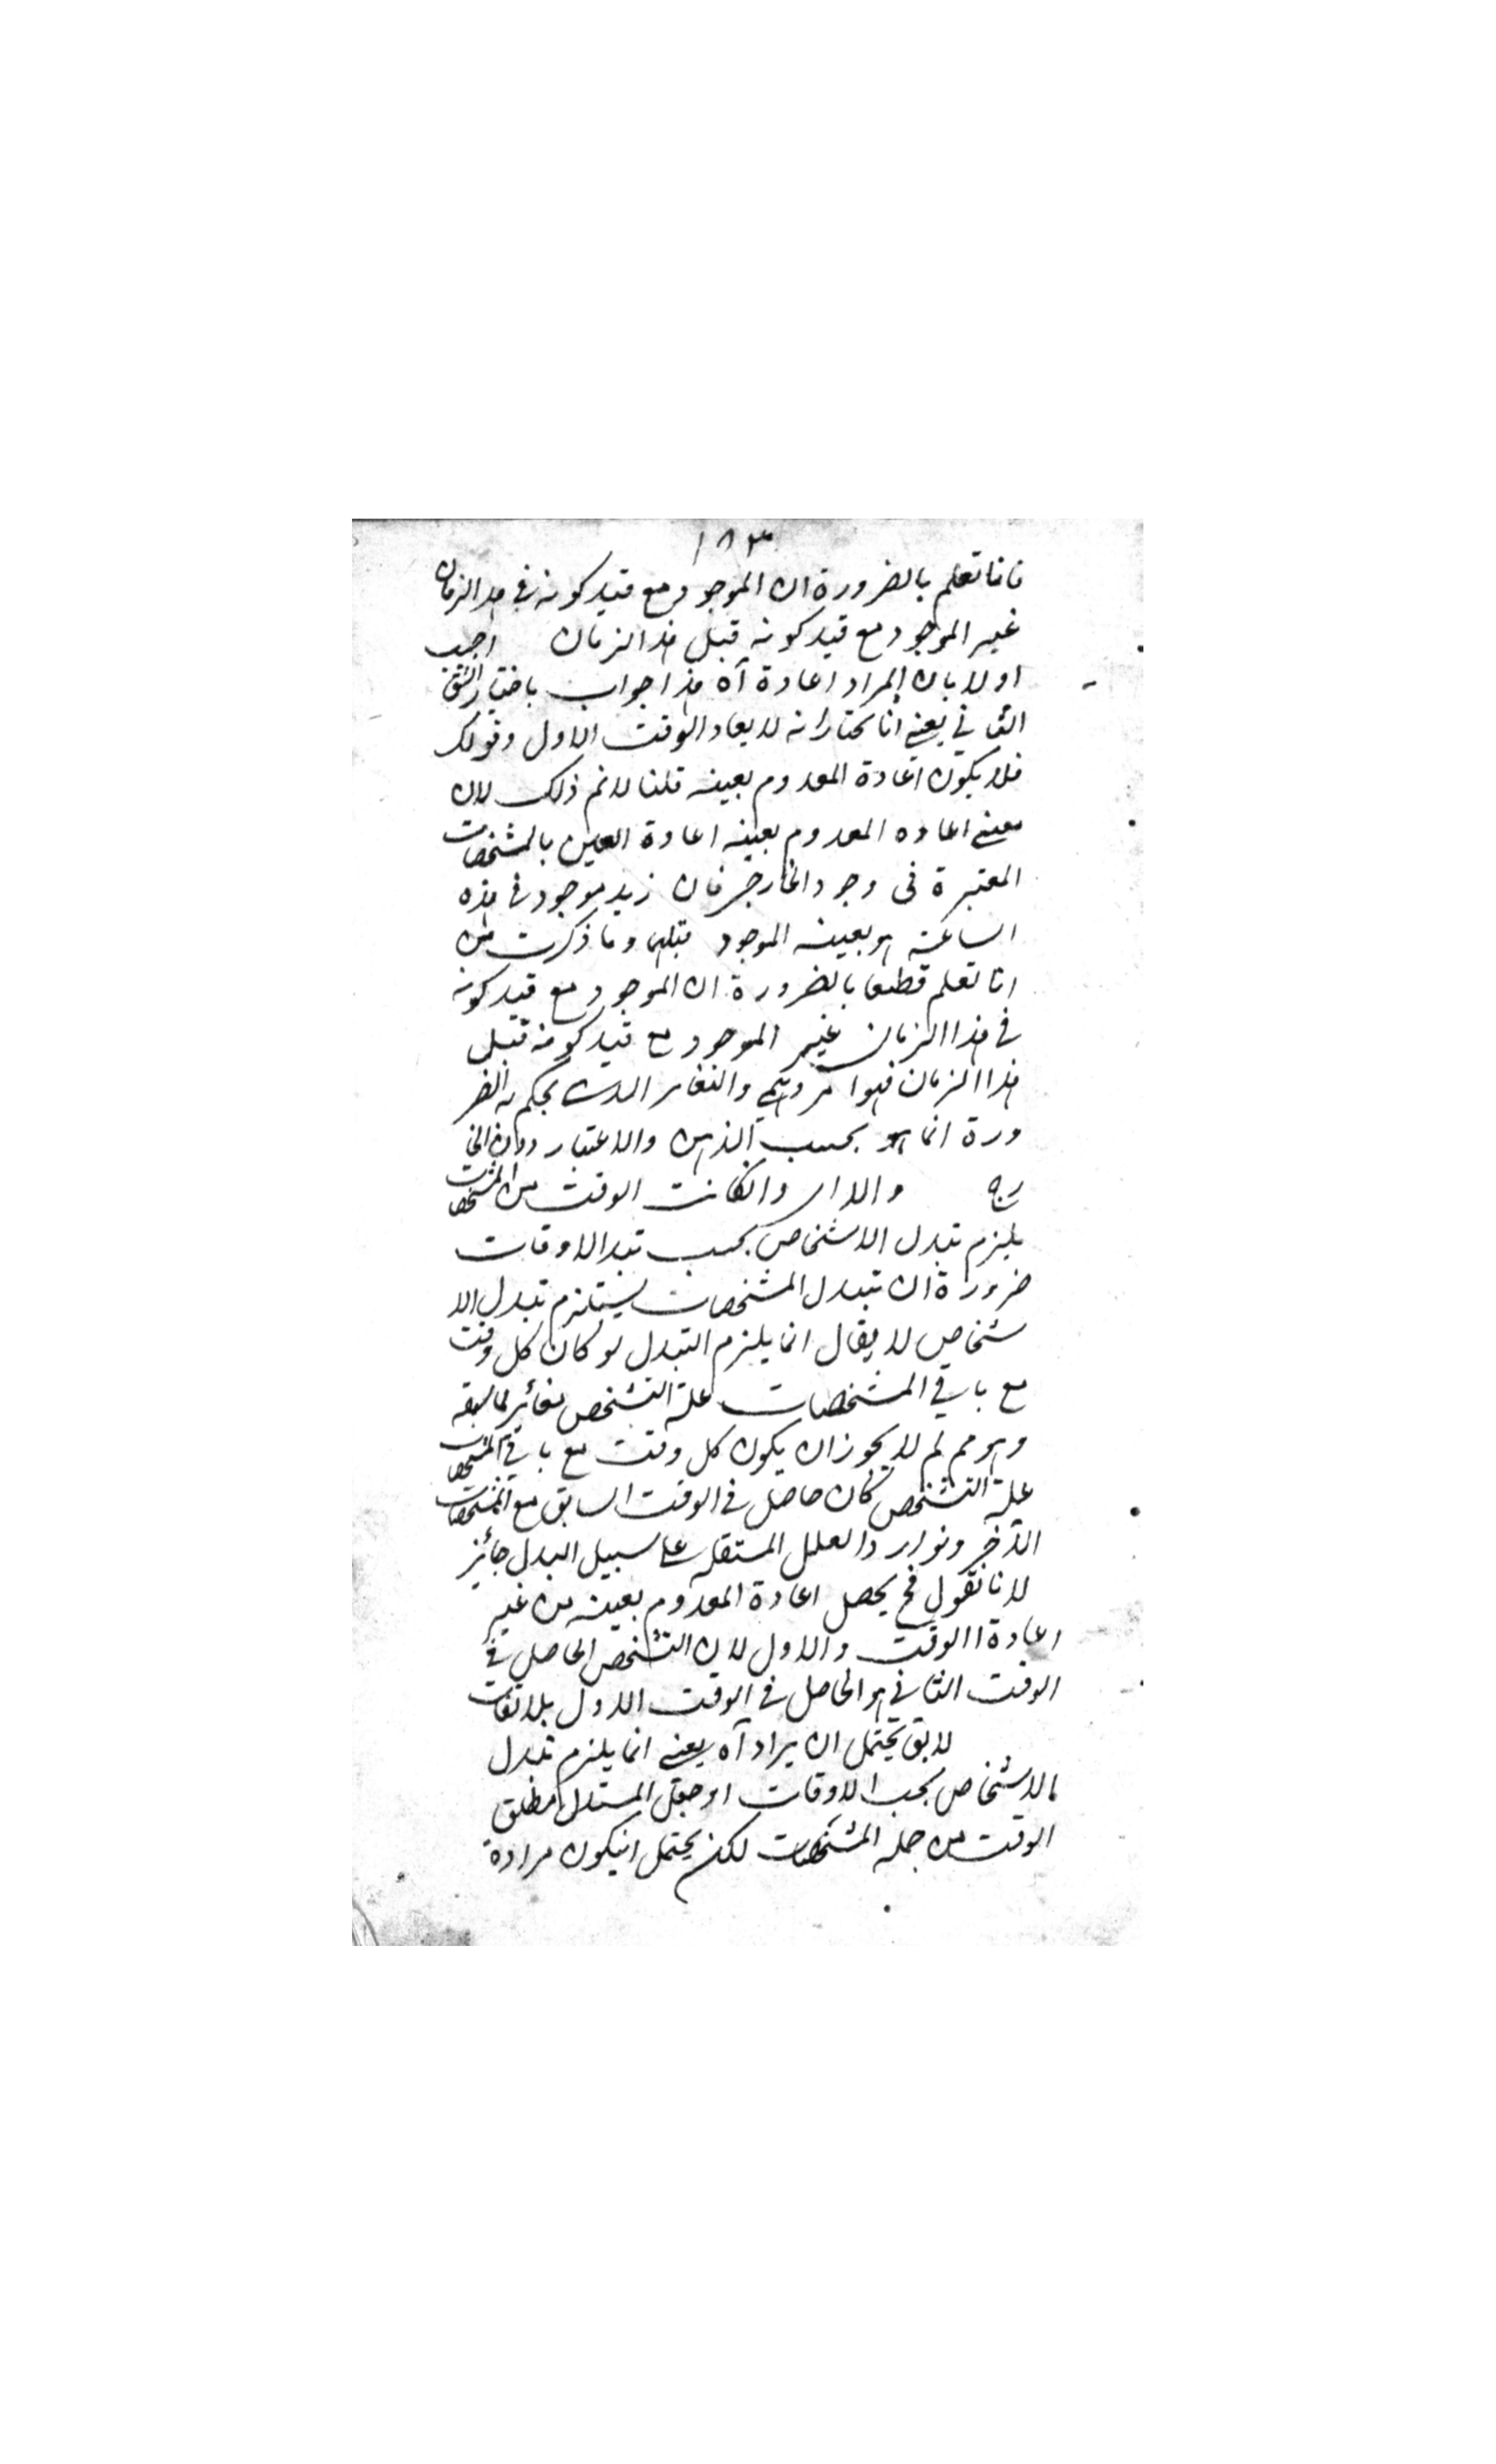 ١٨٣
فانا نعلم بالضرورة ان الموجود مع قيد كونه في هذا الزمان
غير الموجود مع قيد كونه قبل هذا الزمان اجيب
اولا بان المراد اعادة آه هذا جواب باختيار الشق
الثاني يعني انا نختار انه لا يعاد الوقت الاول وقولك
فلا يكون اعادة المعدوم بعينه قلنا لانم ذلك لان
معنى اعاده المعدوم بعينه اعادة العين بالمشخصات
المعتبرة فى وجود الخارجي فان زيد موجود في هذه
الساعة هو بعينه الموجود قبلها وما ذكرت من
انا نعلم قطعا بالضرورة ان الموجود مع قيد كونه
في هذا الزمان غير الموجود مع قيد كونه قبل
هذا الزمان فهو امر وهمي والتغاير الذي يحكم به الضر
ورة انما هو بحسب الذهن والاعتبار دون الخا
رج والا اى وانكانت الوقت من المشخصات
يلزم تبدل الاشخاص بحسب تبدالاوقات
ضرورة ان تبدل المشخصات يستلزم تبدل الا
شخاص لا يقال انما يلزم التبدل لو كان كل وقت
مع باقي المشخصات علة التشخص مغائر لما سبقه
وهو مم لم لا يجوز ان يكون كل وقت مع باقي المشخصات
علة التشخص كان حاصل في الوقت السابق مع المشخصات
الآخر وتوارد العلل المستقلة على سبيل البدل جائز
لانا نقول فح يحصل اعادة المعدوم بعينه من غير
اعادة االوقت والاول لان التشخص الحاصل في
الوقت الثاني هو الحاصل في الوقت الاول بلا تفاوت
لا يق يحتمل ان يراد آه يعني انما يلزم تبدل
الاشخاص بحسب الاوقات لو جعل المستدل مطلق
الوقت من جملة المشخصات لكن يحتمل انيكون مرادة